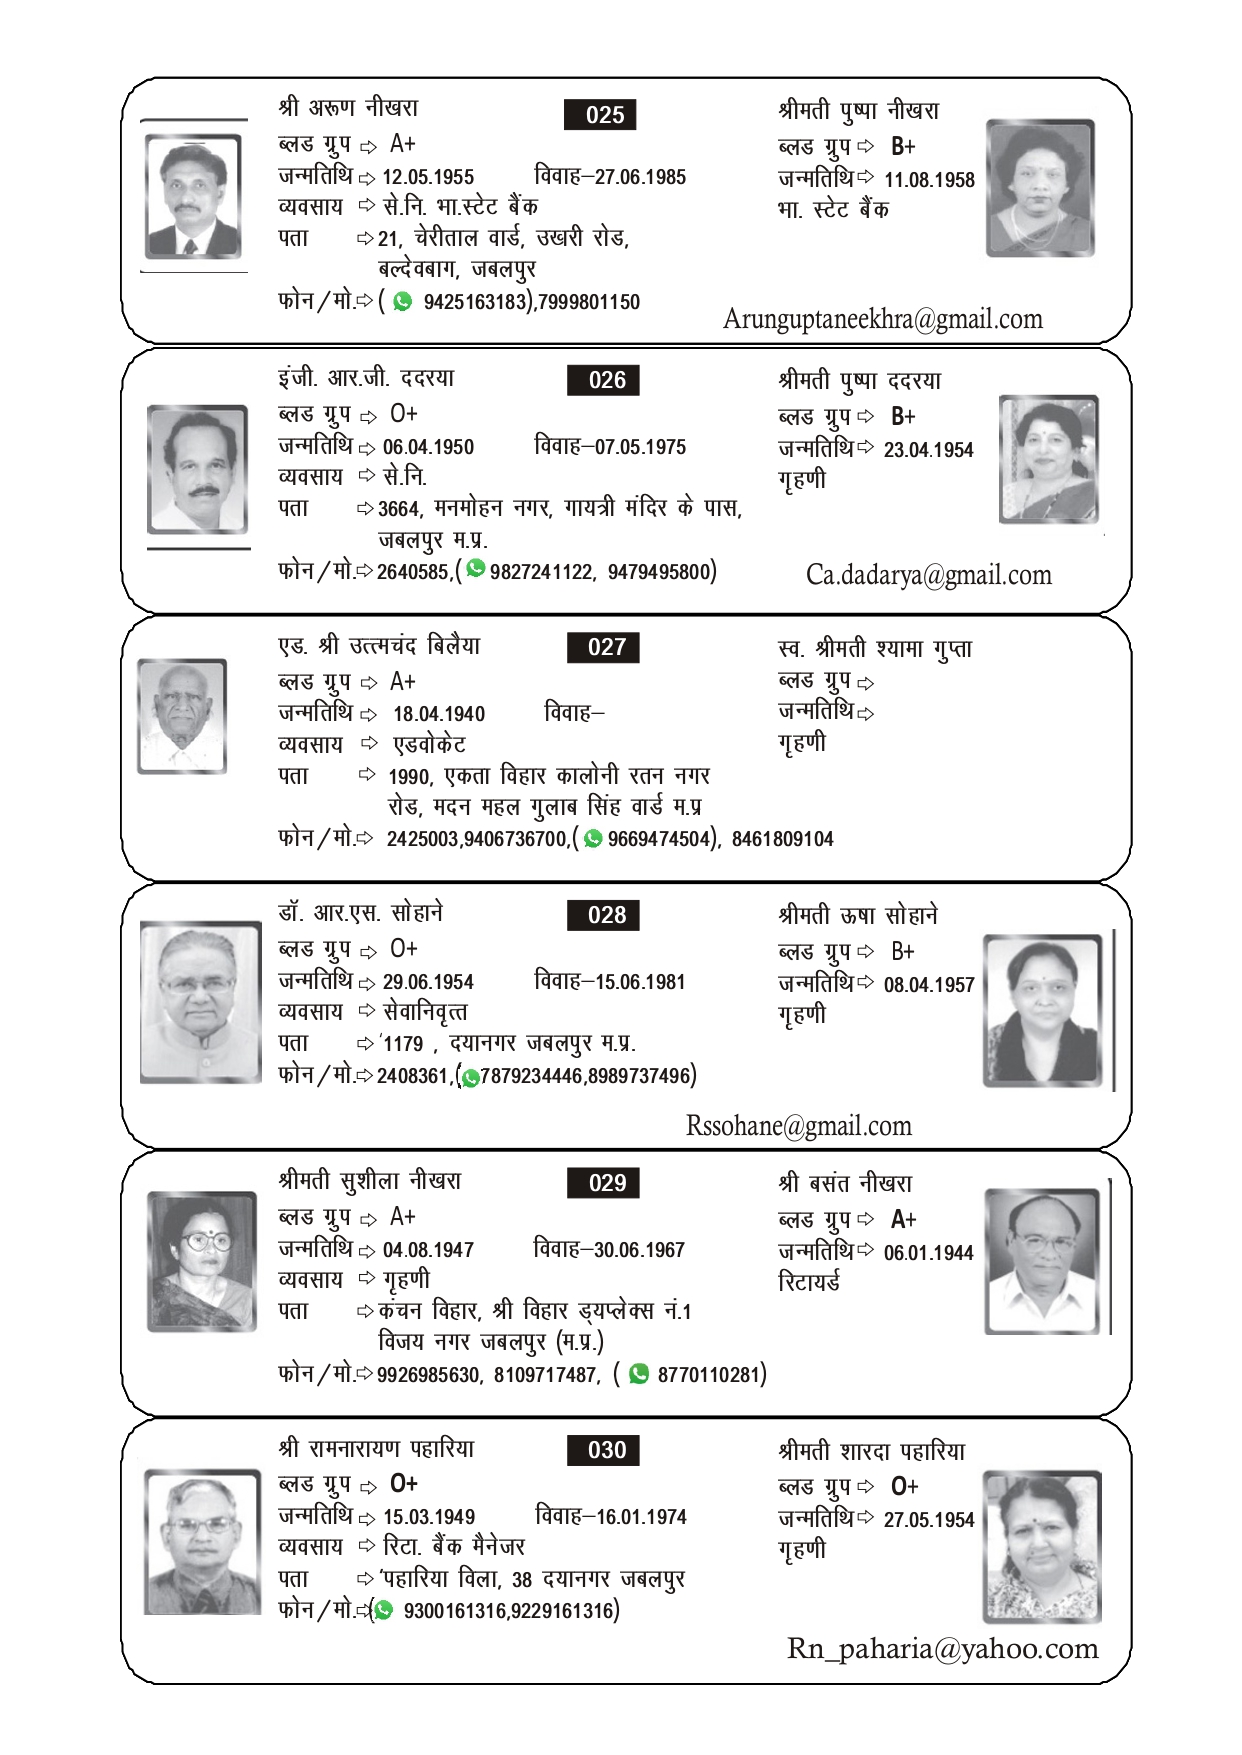 श्री अरूण नीखरा
025
श्रीमती पुष्पा नीखरा
ब्लड ग्रुप ⇨ A+
ब्लड ग्रुप ⇨ B+
जन्मतिथि ⇨ 12.05.1955 विवाह–27.06.1985
जन्मतिथि ⇨ 11.08.1958
व्यवसाय ⇨ से.नि. भा.स्टेट बैंक
भा. स्टेट बैंक
पता ⇨ 21, चेरीताल वार्ड, उखरी रोड,
बल्देवबाग, जबलपुर
फोन/मो.⇨ ( 9425163183),7999801150
Arunguptaneekhra@gmail.com
इंजी. आर.जी. ददरया
026
श्रीमती पुष्पा ददरया
ब्लड ग्रुप ⇨ O+
ब्लड ग्रुप ⇨ B+
जन्मतिथि ⇨ 06.04.1950 विवाह–07.05.1975
जन्मतिथि ⇨ 23.04.1954
व्यवसाय ⇨ से.नि.
गृहणी
पता ⇨ 3664, मनमोहन नगर, गायत्री मंदिर के पास,
जबलपुर म.प्र.
फोन/मो.⇨ 2640585,( 9827241122, 9479495800)
Ca.dadarya@gmail.com
एड. श्री उत्त्मचंद बिलैया
027
स्व. श्रीमती श्यामा गुप्ता
ब्लड ग्रुप ⇨ A+
ब्लड ग्रुप ⇨
जन्मतिथि ⇨ 18.04.1940 विवाह–
जन्मतिथि ⇨
व्यवसाय ⇨ एडवोकेट
गृहणी
पता ⇨ 1990, एकता विहार कालोनी रतन नगर
रोड, मदन महल गुलाब सिंह वार्ड म.प्र
फोन/मो.⇨ 2425003,9406736700,( 9669474504), 8461809104
डॉ. आर.एस. सोहाने
028
श्रीमती ऊषा सोहाने
ब्लड ग्रुप ⇨ O+
ब्लड ग्रुप ⇨ B+
जन्मतिथि ⇨ 29.06.1954 विवाह–15.06.1981
जन्मतिथि ⇨ 08.04.1957
व्यवसाय ⇨ सेवानिवृत्त
गृहणी
पता ⇨ '1179 , दयानगर जबलपुर म.प्र.
फोन/मो.⇨ 2408361,( 7879234446,8989737496)
Rssohane@gmail.com
श्रीमती सुशीला नीखरा
029
श्री बसंत नीखरा
ब्लड ग्रुप ⇨ A+
ब्लड ग्रुप ⇨ A+
जन्मतिथि ⇨ 04.08.1947 विवाह–30.06.1967
जन्मतिथि ⇨ 06.01.1944
व्यवसाय ⇨ गृहणी
रिटायर्ड
पता ⇨ कंचन विहार, श्री विहार ड्यप्लेक्स नं.1
विजय नगर जबलपुर (म.प्र.)
फोन/मो.⇨ 9926985630, 8109717487, ( 8770110281)
श्री रामनारायण पहारिया
030
श्रीमती शारदा पहारिया
ब्लड ग्रुप ⇨ O+
ब्लड ग्रुप ⇨ O+
जन्मतिथि ⇨ 15.03.1949 विवाह–16.01.1974
जन्मतिथि ⇨ 27.05.1954
व्यवसाय ⇨ रिटा. बैंक मैनेजर
गृहणी
पता ⇨ 'पहारिया विला, 38 दयानगर जबलपुर
फोन/मो.⇨( 9300161316,9229161316)
Rn_paharia@yahoo.com